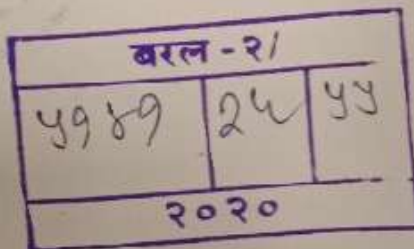 बरल - २/
५१४१ २५ ५५
२०२०